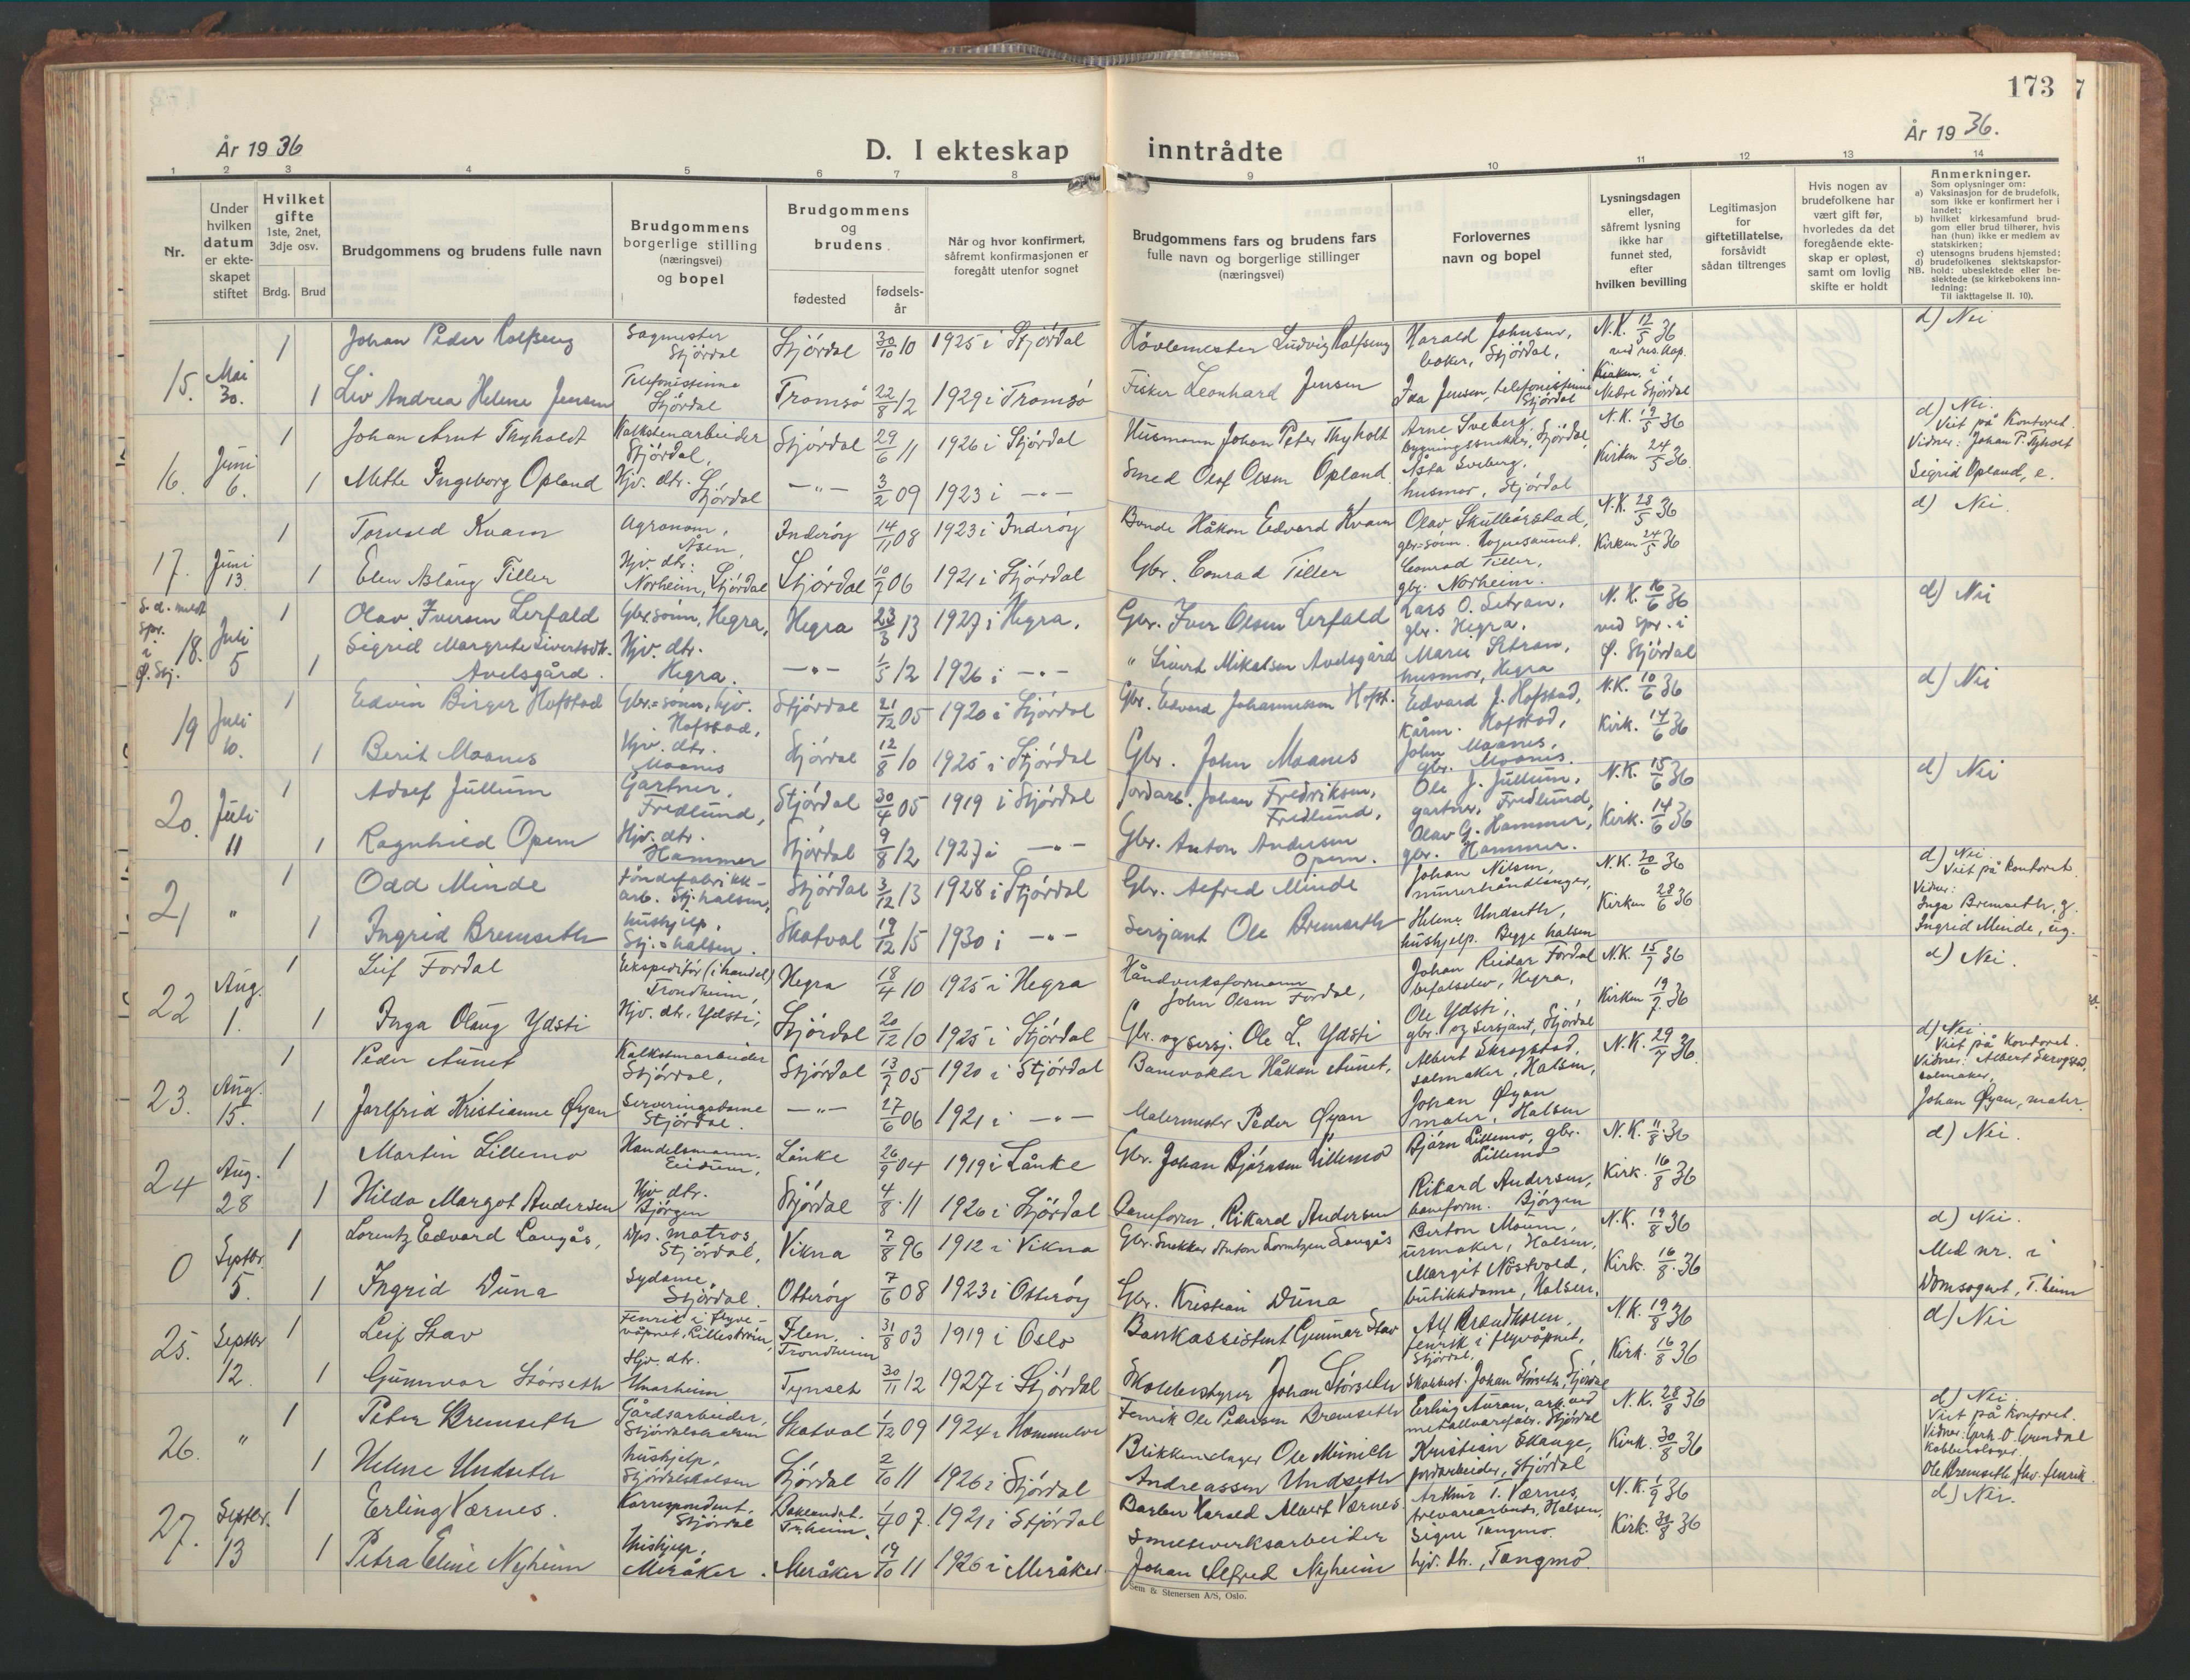 173
År 1936
D. I ekteskap inntrådte
År 1936.
1 2 3 4 5 6 7 8 9 10 11 12 13 14
Nr.
Under hvilken datum er ekte-skapet stiftet
Hvilket gifte 1ste, 2net, 3dje osv.
Brdg. Brud
Brudgommens og brudens fulle navn
Brudgommens borgerlige stilling (næringsvei) og bopel
Brudgommens og brudens
fødested
fødsels-år
Når og hvor konfirmert, såfremt konfirmasjonen er foregått utenfor sognet
Brudgommens fars og brudens fars fulle navn og borgerlige stillinger (næringsvei)
Forlovernes navn og bopel
Lysningsdagen eller, såfremt lysning ikke har funnet sted, efter hvilken bevilling
Legitimasjon for giftetillatelse, forsåvidt sådan tiltrenges
Hvis nogen av brudefolkene har vært gift før, hvorledes da det foregående ekte-skap er opløst, samt om lovlig skifte er holdt
Anmerkninger.
Som oplysninger om:
a) Vaksinasjon for de brudefolk, som ikke er konfirmert her i landet;
b) hvilket kirkesamfund brud-gom eller brud tilhører, hvis han (hun) ikke er medlem av statskirken;
c) utensogns brudens hjemsted;
d) brudefolkenes slektskapsfor-hold: ubeslektede eller be-slektede (se kirkebokens inn-ledning:
NB. Til iakttagelse II. 10).
15. Mai 30. 1 Johan Peder Rolfseng Sagmester Stjørdal Stjørdal 30/10 10 1925 i Stjørdal Høvlemester Ludvig Rolfseng Harald Johnsen, Stjørdal, N.K. 12/5 36 d) Nei
1 Liv Andrea Helene Jensen Telefonistinne Stjørdal Tromsø 22/8 12 1929 i Tromsø Fisker Leonhard Jensen Jensen, telefonistinne Stjørdal Kirken i Nedre Stjørdal
16. Juni 6. 1 Johan Arnt Thyholdt Kalkstenarbeider Stjørdal, Stjørdal 29/6 11 1926 i Stjørdal Husmann Johan Peter Thyholt Arne Sveberg, bygningssnekker, Stjørdal, N.K. 19/5 36 d) Nei. Viet på kontoret. Vidner: Johan P. Tyholt
1 Mette Ingeborg Opland Hjv. dtr. Stjørdal —"— 3/2 09 1923 i —"— Smed Olaf Olsen Opland. Åsta Sveberg, husmor, Stjørdal Kirken 24/5 36. Sigrid Opland, e.
17. Juni 13. 1 Torvald Kvam Agronom, Åsen, Inderøy 14/11 08 1923 i Inderøy Bonde Håkon Edvard Kvam Olav Skulbørstad, gbr.sønn. N.K. 28/5 36 d) Nei.
1 Elen Aslaug Tiller Hjv. dtr. Norheim, Stjørdal Stjørdal 10/7 06 1921 i Stjørdal Gbr. Conrad Tiller Conrad Tiller, gbr. Norheim. Kirken 24/5 36
S. d. meldt spr. i Ø. Stj. 18. Juli 5 1 Olav Iversen Lerfald Gbr.sønn, Hegra, Hegra 23/3 13 1927 i Hegra. Gbr. Iver Olsen Lerfald Lars O. Setran, gbr. Hegra. N.K. 16/6 36 d) Nei
1 Sigrid Margrete Sivertsdtr. Avelsgård. Hjv. dtr. Hegra. —"— 1/5 12 1926 i —"— " Sivert Mikalsen Avelsgård Marie Setran, husmor, Hegra ved spr. i Ø. Stjørdal
19 Juli 10. 1 Edvin Birger Hofstad Gbr.=sønn, hjv. Hofstad, Stjørdal 21/12 05 1920 i Stjørdal Gbr. Edvard Johannesen Hofst. Edvard J. Hofstad, Kårm. Hofstad, N.K. 10/6 36 d) Nei
1 Berit Moanes Hjv. dtr. Moanes Stjørdal 12/8 10 1925 i Stjørdal Gbr. John Moanes John Moanes, gbr. Moanes. Kirk. 14/6 36
20. Juli 11 1 Adolf Jullum Gartner. Fredlund, Stjørdal 30/4 05 1919 i Stjørdal Jordarb. Johan Fredriksen, Fredlund, Ole J. Jullum, gartner, Fredlund, N.K. 15/6 36 d) Nei
1 Ragnhild Opem Hjv. dtr. Hammer Stjørdal 9/8 12 1927 i —"— Gbr. Anton Andersen Opem. Olav G. Hammer, gbr. Hammer. Kirk. 14/6 36
21 " 1 Odd Minde Tøndefabrikk-arb. Stj.halsen, Stjørdal 3/12 13 1928 i Stjørdal Gbr. Alfred Minde Johan Nilsen, murerhåndlanger, N.K. 20/6 36 d) Nei. Viet på kontoret. Vidner:
1 Ingrid Bremseth hushjelp, Stj.halsen. Skatval 19/12 15 1930 i —"— Sersjant Ole Bremseth Helene Undseth, hushjelp. Begge halsen Kirken 28/6 36 Inga Bremseth, g. Ingrid Minde, ug.
22 Aug. 1. 1 Leif Fordal Ekspeditør (i handel) Trondheim, Hegra 18/4 10 1925 i Hegra Håndverksformann John Olsen Fordal, Johan Reidar Fordal befalselev, Hegra, N.K. 15/7 36 d) Nei.
1 Inga Olaug Ydsti Hjv. dtr. Ydsti, Stjørdal 20/12 10 1925 i Stjørdal Gbr. og sersj. Ole L. Ydsti Ole Ydsti, gbr. og sersjant, Stjørdal Kirken 19/7 36
23. Aug. 15. 1 Peder Aunet Kalkstenarbeider Stjørdal, Stjørdal 13/7 05 1920 i Stjørdal Banevokter Håkon Aunet, Albert Skrogstad, salmaker, Halsen, N.K. 29/7 36. d) Nei. Viet på kontoret. Vidner: Albert Skrogstad, salmaker,
1 Jarlfrid Kristianne Øyan Serveringsdame Stjørdal. —"— 27/6 06 1921 i —"— Malermester Peder Øyan Johan Øyan maler, Halsen Johan Øyan, maler.
24 Aug. 28 1 Martin Lillemo Handelsmann. Eidum, Lånke 26/9 04 1919 i Lånke Gbr. Johan Bjørnsen Lillemo Bjørn Lillemo, gbr. Lillemo N.K. 11/8 36 d) Nei.
1 Hilda Margot Andersen Hjv. dtr. Bjørgen Stjørdal 4/8 11 1926 i Stjørdal Baneform. Rikard Andersen Rikard Andersen, baneform. Bjørgen Kirk. 16/8 36
0 Septbr. 5. 1 Lorentz Edvard Langås, Dps. matros, Stjørdal, Vikna 7/8 96 1912 i Vikna Gbr. Snekker Anton Lorentzen Langås Berton Moum, urmaker, Halsen, N.K. 19/8 36 d) Nei.
1 Ingrid Duna Sydame, Stjørdal. Otterøy 7/6 08 1923 i Otterøy Gbr. Kristian Duna Margit Nøstvold, butikkdame, Halsen. Kirk. 16/8 36 Med nr. i Domsognet, T.heim
25. Septbr 12. 1 Leif Stav Fenrik i flyve-våpnet, Lillestrøm, Ilen, Trondheim 31/8 03 1919 i Oslo Bankassistent Gunnar Stav Alf Brandhoren, fenrik i flyvåpnet, Stjørdal. N.K. 19/8 36 d) Nei
1 Gunnvor Størseth Hjv. dtr. Unarheim Tynset 30/11 12 1927 i Stjørdal Skolebestyrer Johan Størseth Skolebest. Johan Størseth, Stjørdal Kirk. 16/8 36
26. " 1 Peter Bremseth Gårdsarbeider, Stjørdalshalsen Skatval 1/12 09 1924 i Hommelvik Fenrik Ole Pedersen Bremseth Erling Auran, arb. ved metallvarefabr. Stjørdal N.K. 28/8 36 d) Nei. Viet på kontoret. Vidner:
1 Helene Undseth hushjelp, Stjørdalshalsen Stjørdal 2/10 11 1926 i Stjørdal Blikkenslager Ole Minich Andreassen Undseth Kristian Ekange, jordarbeider, Stjørdal Kirk. 30/8 36 Kobberslager. Ole Bremseth, fhv. fenrik
27. Septbr. 13 1 Erling Værnes. Korrespondent, Stjørdal Baklandet. Tr.heim. 1/4 07. 1921 i Stjørdal Barber Harald Albert Værnes. Arthur T. Værnes, trevarearbeider, Halsen, N.K. 1/9 36 d) Nei.
1 Petra Eline Nyheim Hushjelp, Meråker. Meråker 19/10 11 1926 i Meråker. Smelteverksarbeider Johan Alfred Nyheim Signe Tangmo. hjv. dtr., Tangmo. Kirk. 30/8 36
Sem & Stenersen A/S, Oslo.